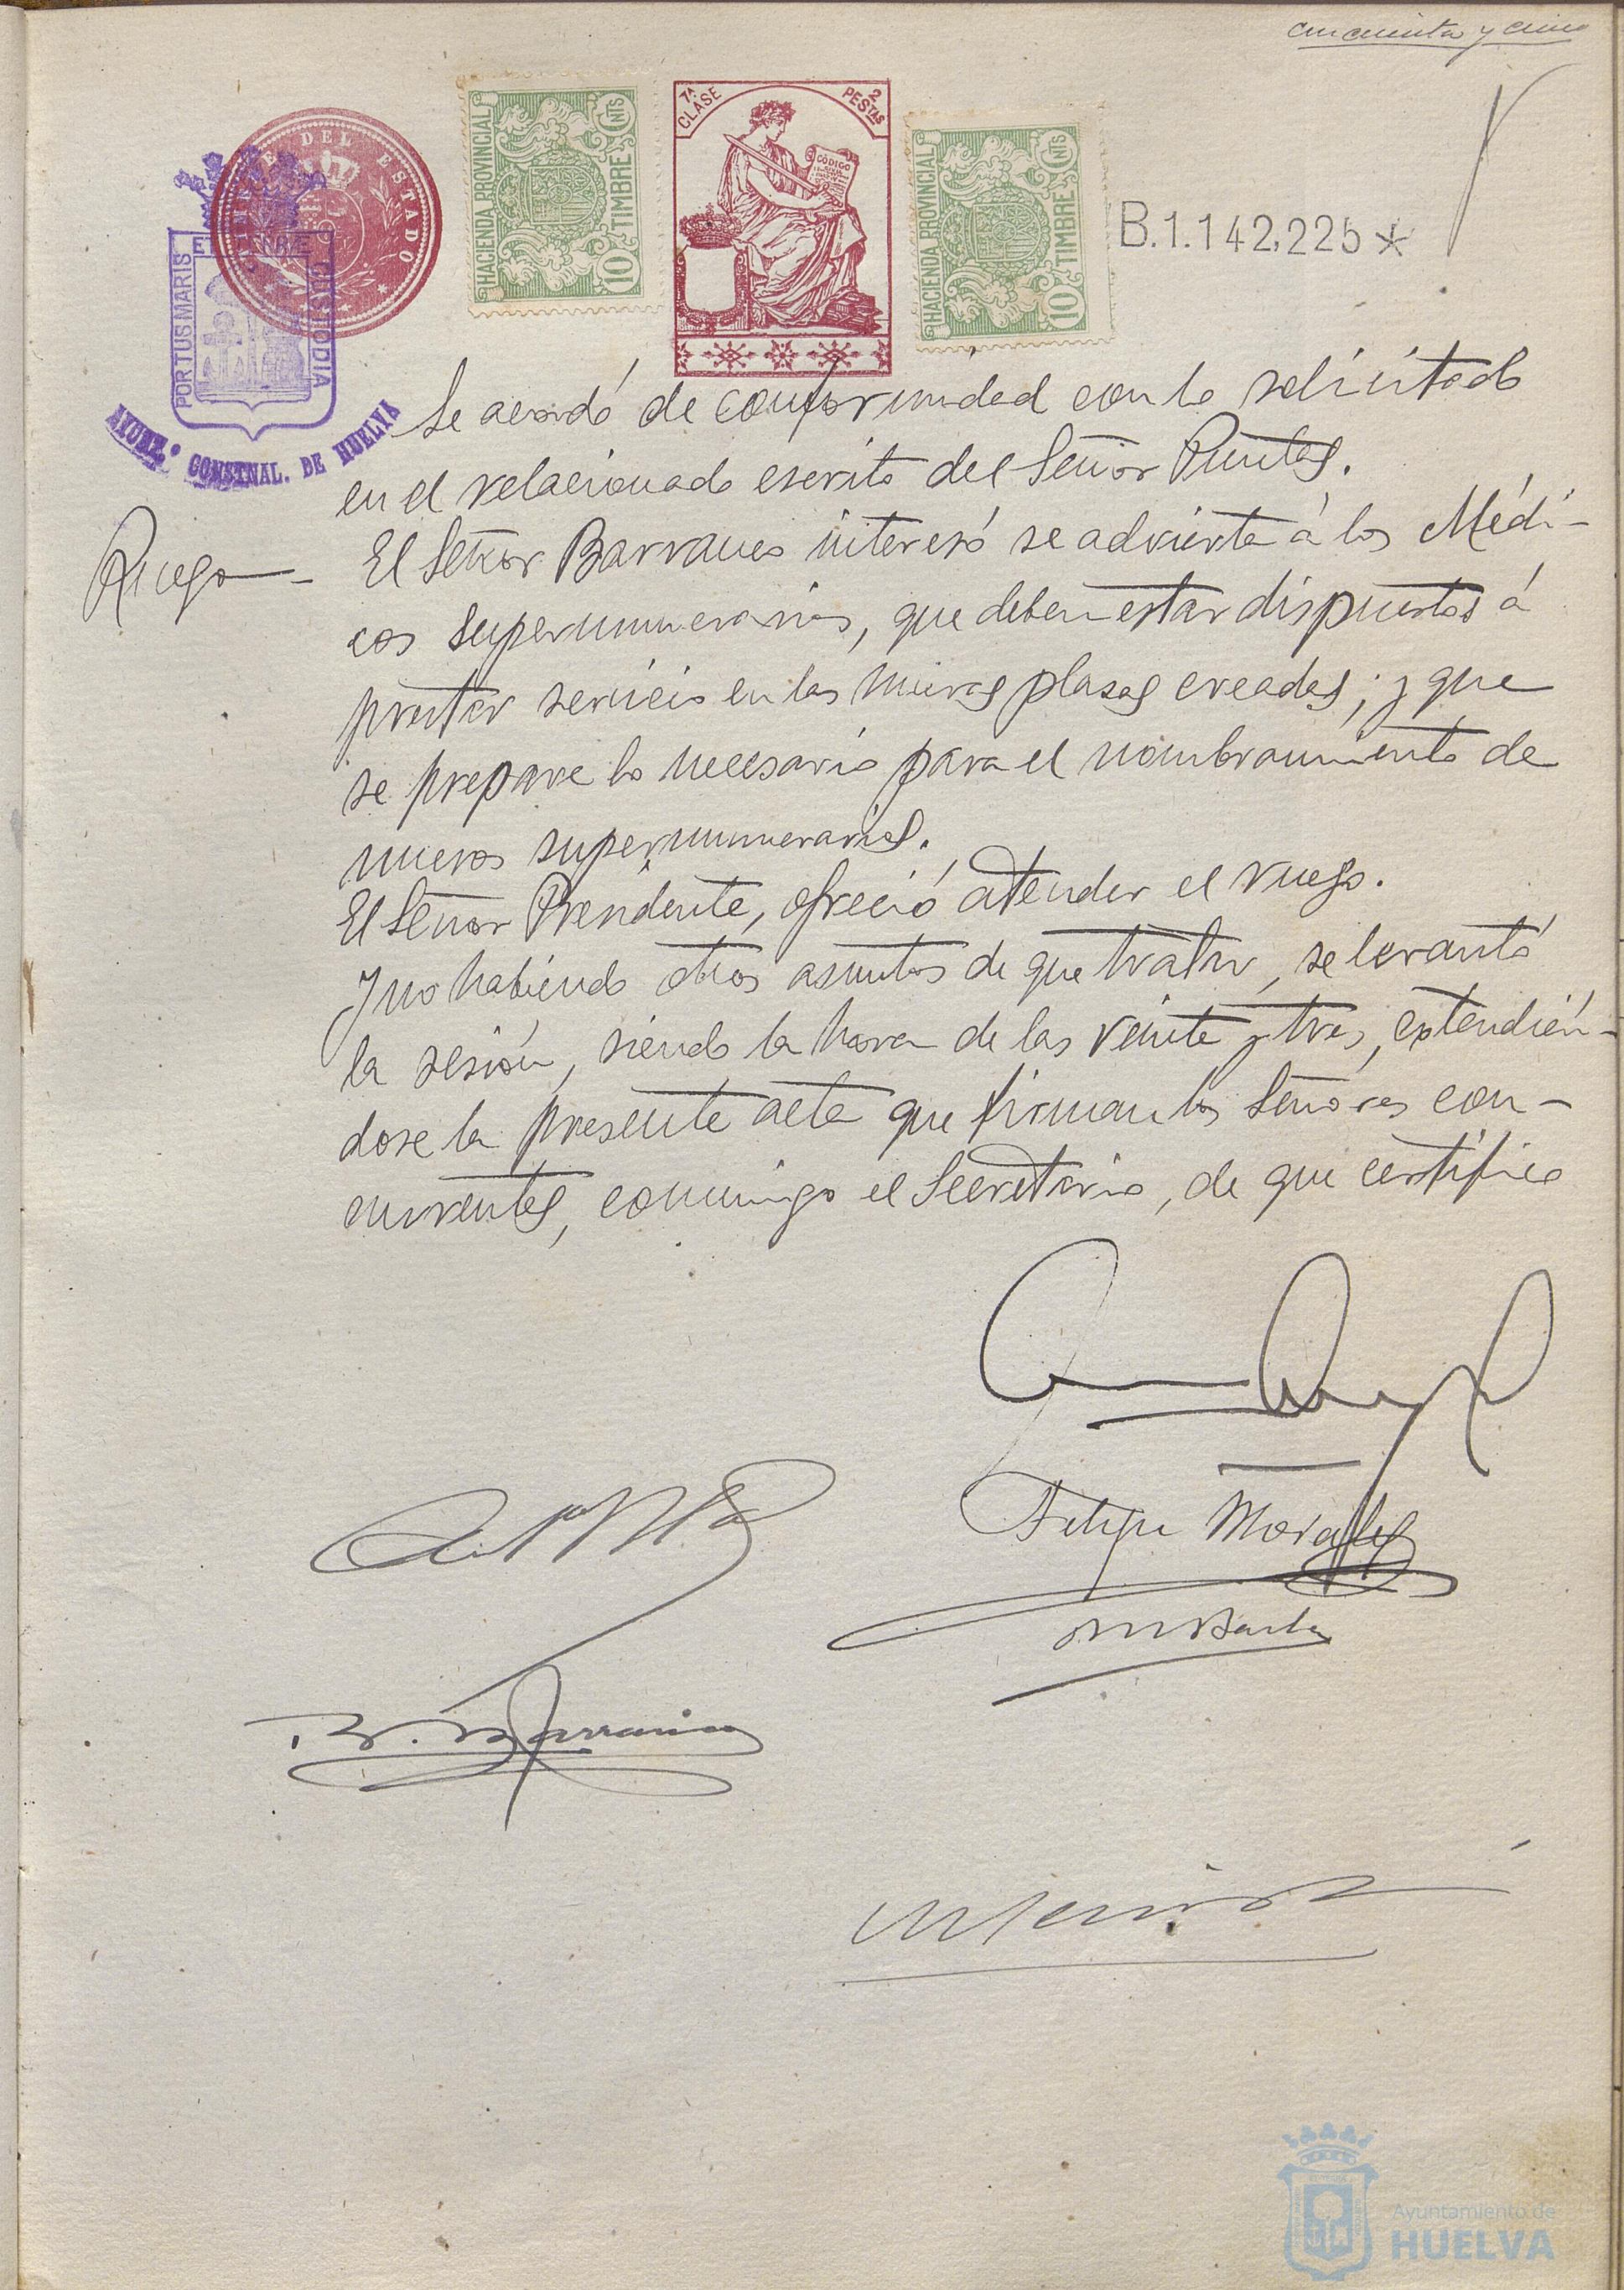 cincuenta y cinco
TIMBRE DEL ESTADO
PORTUS MARIS
CUSTODIA
AYUNT.º CONSTNAL. DE HUELVA
HACIENDA PROVINCIAL
TIMBRE
10 CNTS
7ª CLASE
2 PESTAS
CÓDIGO
HACIENDA PROVINCIAL
TIMBRE
10 CNTS
B.1.142,225 *
Se acordó de conformidad con lo solicitado
en el relacionado escrito del Señor Puntas.
Ruego
El Señor Barranco interesó se advierta á los Médi-
cos supernumerarios, que deben estar dispuestos á
prestar servicio en las nuevas plasas creadas; y que
se prepare lo necesario para el nombramiento de
nuevos supernumerarios.
El Señor Presidente, ofreció atender el ruego.
Y no habiendo otros asuntos de que tratar, se levantó
la sesión, siendo la hora de las veinte y tres, extendién-
dose la presente acta que firman los Señores con-
currentes, conmigo el Secretario, de que certifico
Felipe Morales
Barranco
Ayuntamiento de
HUELVA